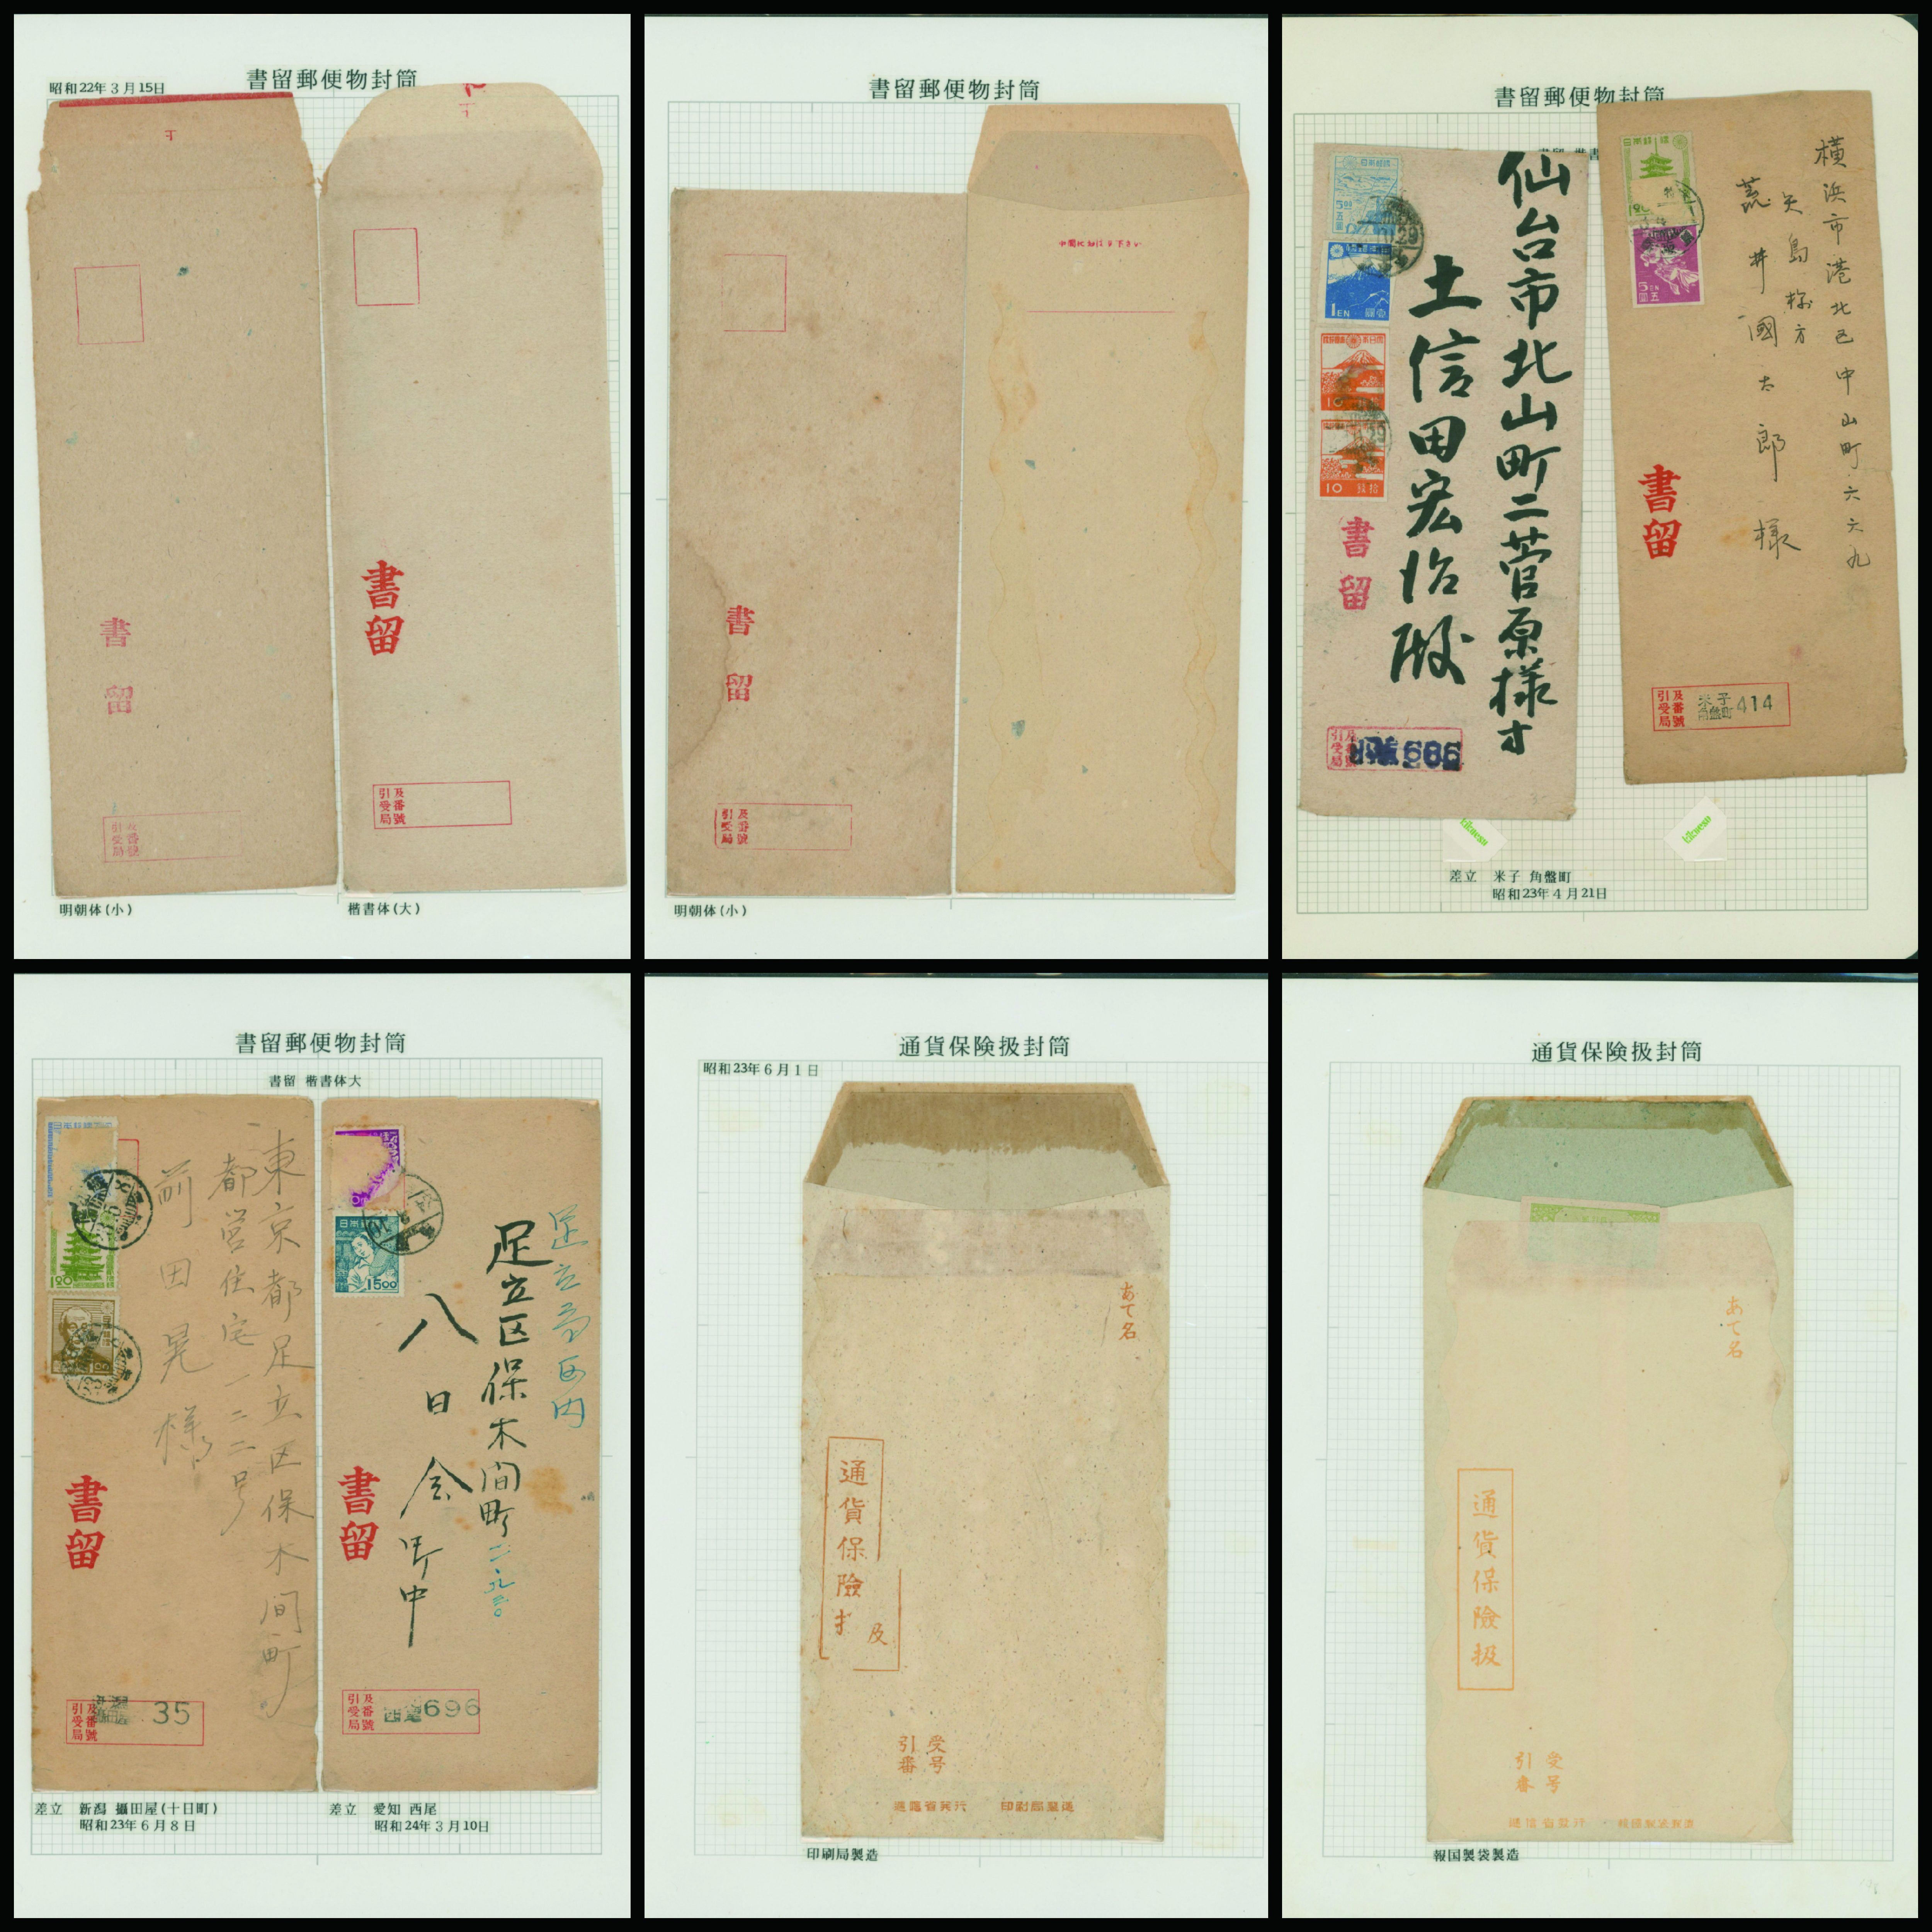 書留郵便物封筒
昭和22年3月15日
〒
〒
書留
書留
引受局及番號
引受局及番號
明朝体(小)
楷書体(大)
書留郵便物封筒
書留
引受局及番號
明朝体(小)
書留郵便物封筒
仙台市北山町二菅原様方
土信田宏治殿
500
五圓
1EN
壹圓
10
10
拾銭
書留
引受局
686
横浜市港北区中山町六六九
矢島様方
荒井國太郎様
日本郵便
5EN
五圓
書留
引受局及番號
米子
角盤町
414
差立 米子 角盤町
昭和23年4月21日
書留郵便物封筒
書留 楷書体大
東京都足立区保木間町
都営住宅一二二号
前田晃様
120
書留
引受局及番號
35
差立 新潟 攝田屋(十日町)
昭和23年6月8日
足立区保木間町
八日会御中
日本郵便
1500
書留
引受局及番號
西尾
696
差立 愛知 西尾
昭和24年3月10日
通貨保険扱封筒
昭和23年6月1日
あて名
通貨保險扱
引受
番号
逓信省発行 印刷局製造
印刷局製造
通貨保険扱封筒
あて名
通貨保險扱
引受
番号
逓信省発行 報国製袋製造
報国製袋製造